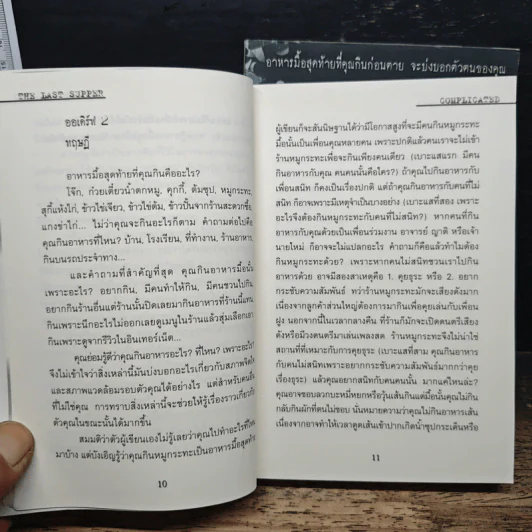 อาหารมื้อสุดท้ายที่คุณกินก่อนตาย จะบ่งบอกตัวตนของคุณ
THE LAST SUPPER
ออเดิร์ฟ 2
ทฤษฎี
อาหารมื้อสุดท้ายที่คุณกินคืออะไร?
โจ๊ก, ก๋วยเตี๋ยวน้ำตกหมู, คุกกี้, ต้มซุป, หมูกระทะ,
สุกี้แห้งไก่, ข้าวไข่เจียว, ข้าวไข่ต้ม, ข้าวปั้นจากร้านสะดวกซื้อ,
แกงข่าไก่... ไม่ว่าคุณจะกินอะไรก็ตาม คำถามต่อไปคือ
คุณกินอาหารที่ไหน? บ้าน, โรงเรียน, ที่ทำงาน, ร้านอาหาร,
กินบนรถประจำทาง...
และคำถามที่สำคัญที่สุด คุณกินอาหารมื้อนั้น
เพราะอะไร? อยากกิน, มีคนทำให้กิน, มีคนชวนไปกิน,
อยากกินร้านอื่นแต่ร้านนั้นปิดเลยมากินอาหารที่ร้านนี้แทน,
กินเพราะนึกอะไรไม่ออกเลยดูเมนูในร้านแล้วสุ่มเลือกเอา,
กินเพราะดูจากรีวิวในอินเทอร์เน็ต...
คุณย่อมรู้ดีว่าคุณกินอาหารอะไร? ที่ไหน? เพราะอะไร?
จึงไม่เข้าใจว่าสิ่งเหล่านี้มันบ่งบอกเกี่ยวกับสภาพจิตใจ
และสภาพแวดล้อมรอบตัวคุณได้อย่างไร แต่สำหรับคนอื่น
ที่ไม่ใช่คุณ การทราบสิ่งเหล่านี้จะช่วยให้รู้เรื่องราวเกี่ยวกับ
ตัวคุณในขณะนั้นได้มากขึ้น
สมมติว่าตัวผู้เขียนเองไม่รู้เลยว่าคุณไปทำอะไรที่ไหน
มาบ้าง แต่บังเอิญรู้ว่าคุณกินหมูกระทะเป็นอาหารมื้อสุดท้าย
10
COMPLICATED
ผู้เขียนก็จะสันนิษฐานได้ว่ามีโอกาสสูงที่จะมีคนกินหมูกระทะ
มื้อนั้นเป็นเพื่อนคุณหลายคน เพราะปกติแล้วคนเราจะไม่เข้า
ร้านหมูกระทะเพื่อจะกินเพียงคนเดียว (เบาะแสแรก มีคน
กินอาหารกับคุณ คนคนนั้นคือใคร?) ถ้าคุณไปกินอาหารกับ
เพื่อนสนิท ก็คงเป็นเรื่องปกติ แต่ถ้าคุณกินอาหารกับคนที่ไม่
สนิท ก็อาจเพราะมีเหตุจำเป็นบางอย่าง (เบาะแสที่สอง เพราะ
อะไรจึงต้องกินหมูกระทะกับคนที่ไม่สนิท?) หากคนที่กิน
อาหารกับคุณด้วยเป็นเพื่อนร่วมงาน อาจารย์ ญาติ หรือเจ้า
นายใหม่ ก็อาจจะไม่แปลกอะไร คำถามก็คือแล้วทำไมต้อง
กินหมูกระทะด้วย? เพราะหากคนไม่สนิทชวนเราไปกิน
อาหารด้วย อาจมีสองสาเหตุคือ 1. คุยธุระ หรือ 2. อยาก
กระชับความสัมพันธ์ ทว่าร้านหมูกระทะมักจะเสียงดังมาก
เนื่องจากลูกค้าส่วนใหญ่ต้องการมากินเพื่อคุยเล่นกับเพื่อน
ฝูง นอกจากนี้ในเวลากลางคืน ที่ร้านก็มักจะเปิดดนตรีเสียง
ดังหรือมีวงดนตรีมาเล่นเพลงสด ร้านหมูกระทะจึงไม่น่าใช่
สถานที่ที่เหมาะกับการคุยธุระ (เบาะแสที่สาม คุณกินอาหาร
กับคนไม่สนิทเพราะอยากกระชับความสัมพันธ์มากกว่าคุย
เรื่องธุระ) แล้วคุณอยากสนิทกับคนคนนั้น มากแค่ไหนล่ะ?
คุณอาจชอบลวกบะหมี่หยกหรือวุ้นเส้นกินแต่มื้อนั้นคุณไม่กิน
กลับกินผักที่ตนไม่ชอบ นั่นหมายความว่าคุณไม่กินอาหารเส้น
เนื่องจากอาจทำให้เวลาดูดเส้นเข้าปากเกิดน้ำซุปกระเด็นหรือ
11